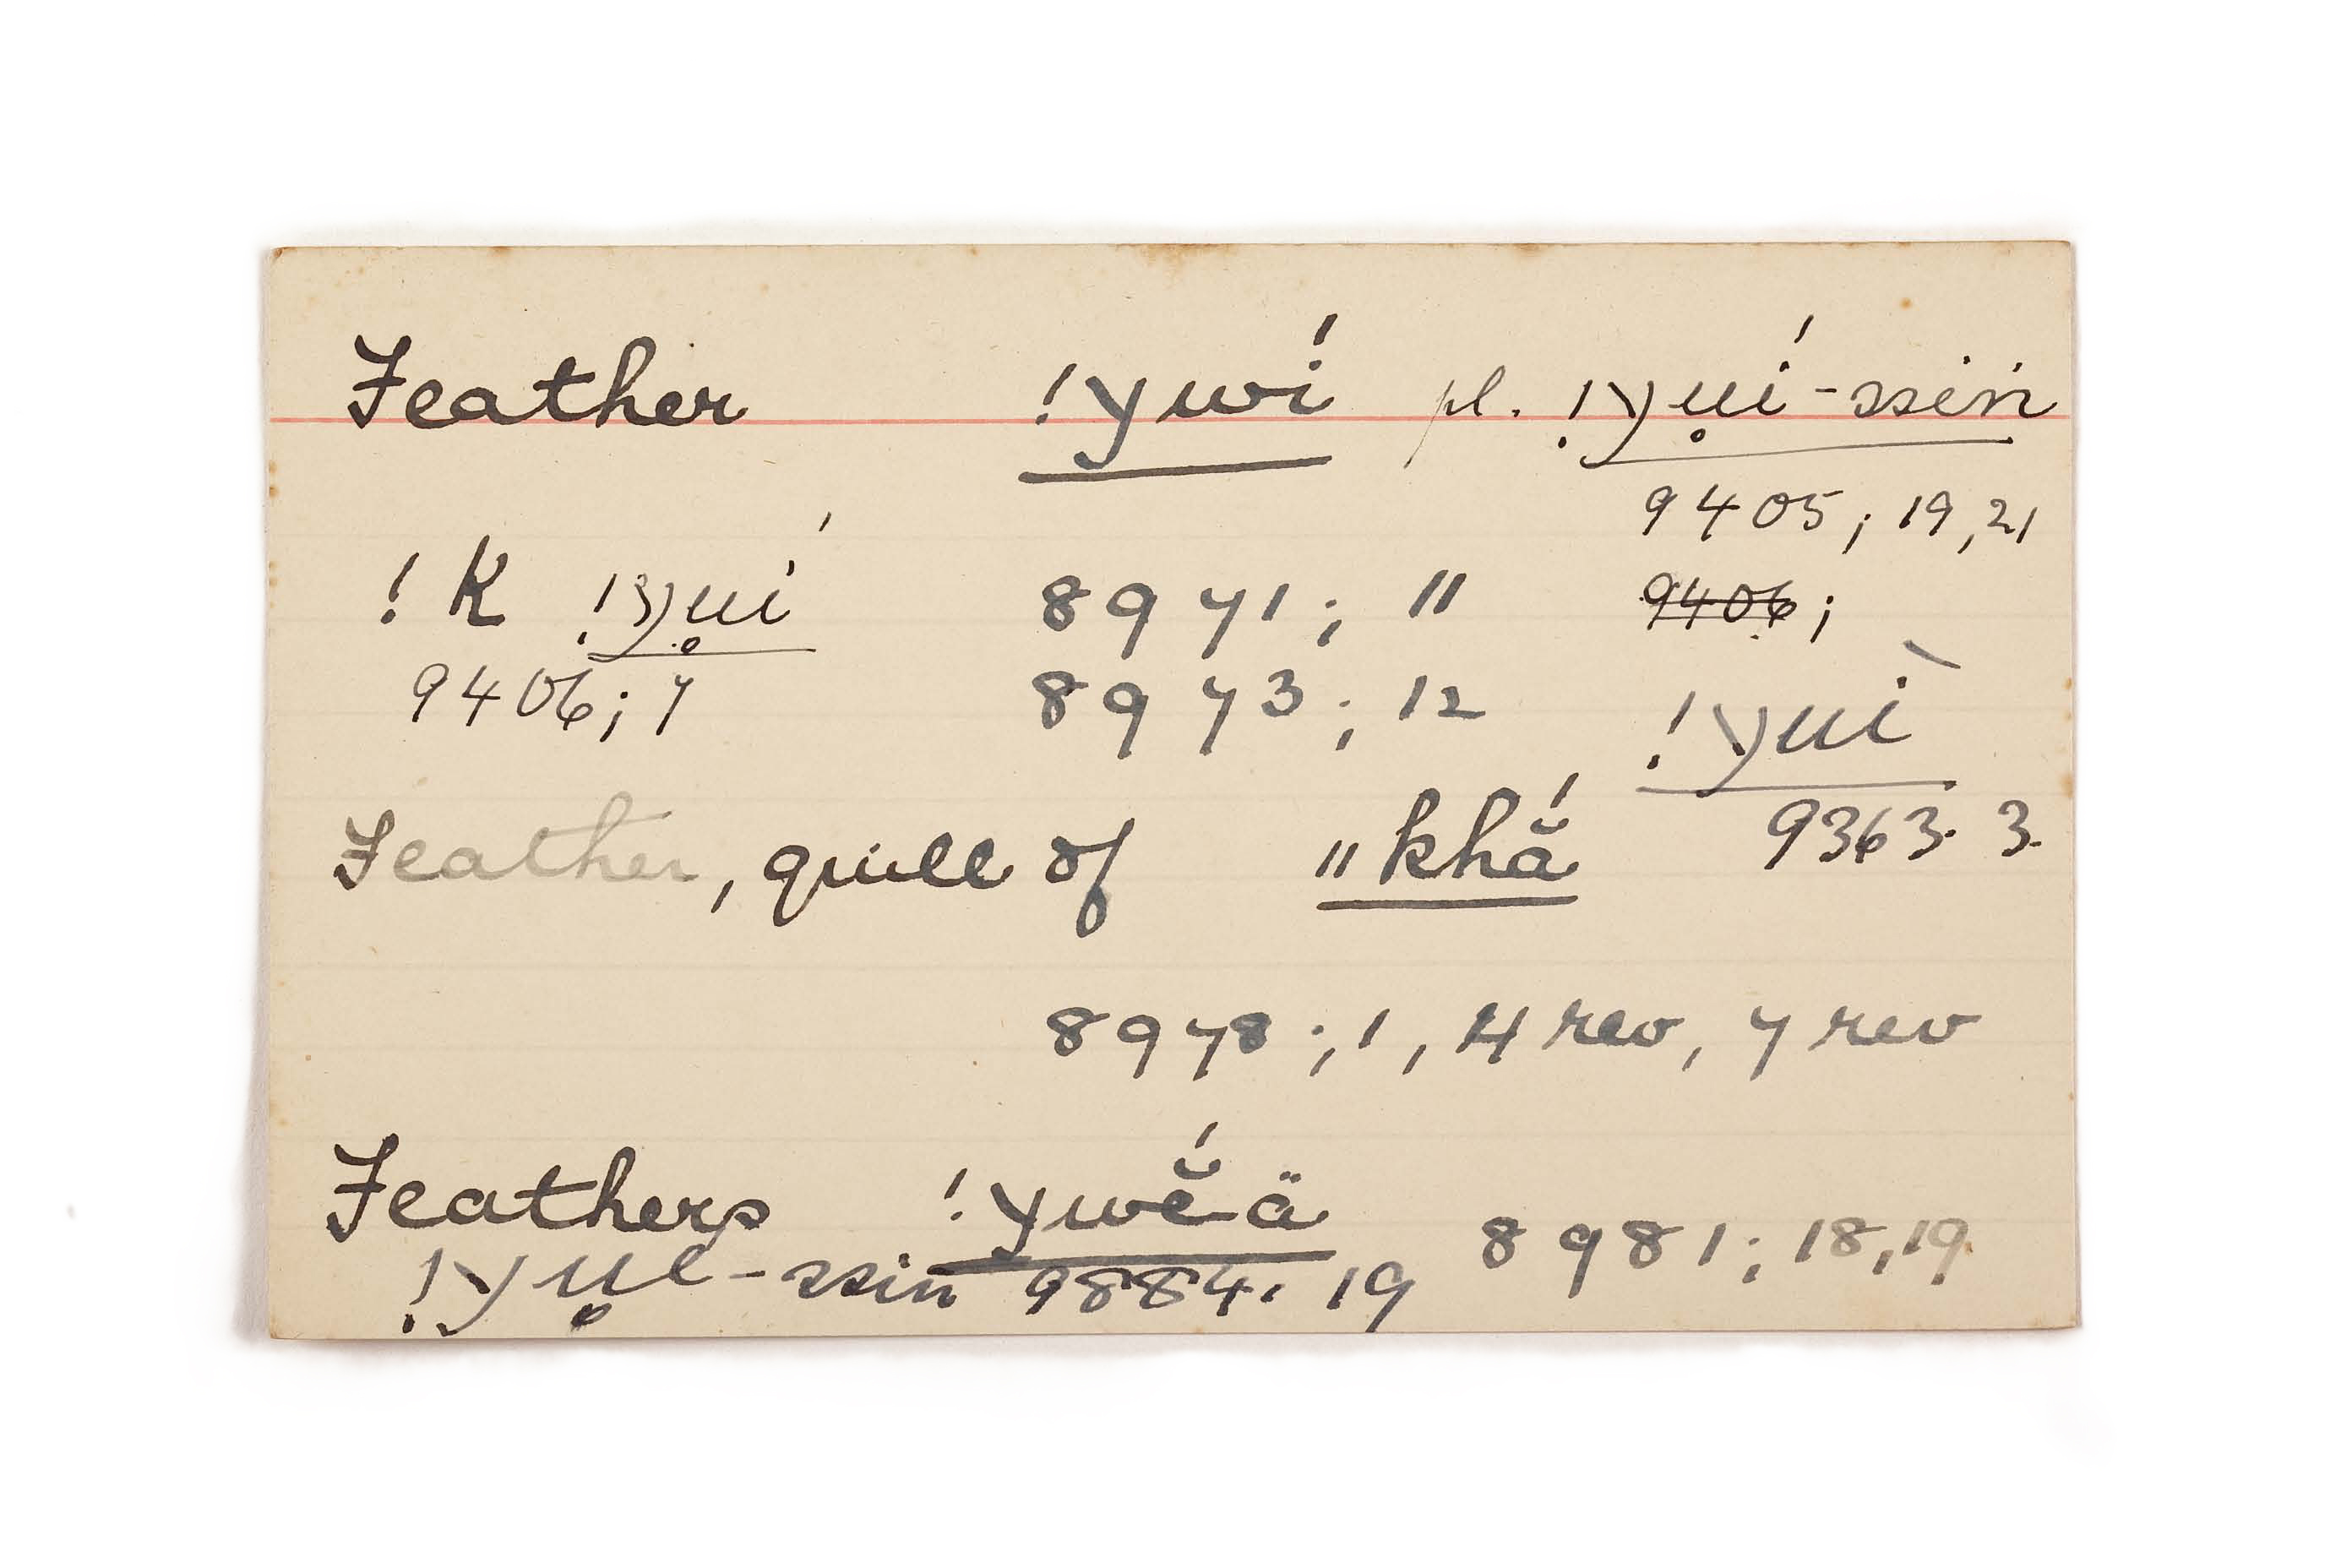 Feather !ywí pl. !yu̥í-ssin
9405; 19, 21
!K !yu̥í 8971; 11 ~~9406~~;
9406; 7 8973; 12 !yuì
Feather, quill of ‖khắ 9363. 3.
8978; 1, 4 rev, 7 rev
Feathers !ywĕ́-ä 8981; 18, 19
!yu̥e-ssin 9884. 19